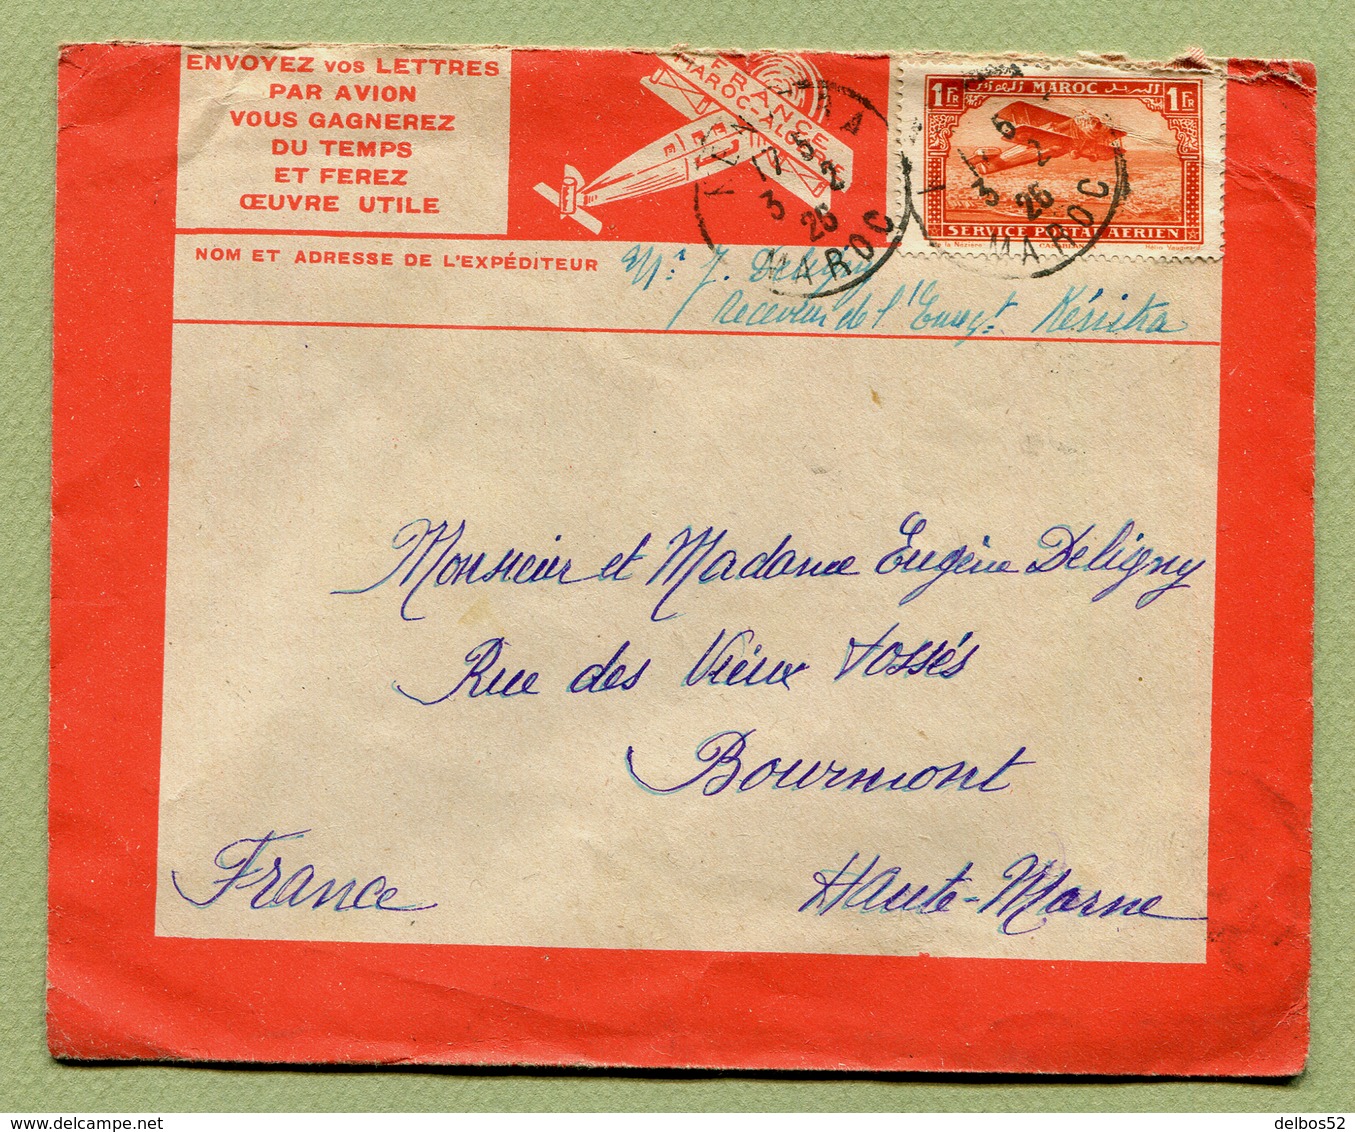 ENVOYEZ VOS LETTRES
PAR AVION
VOUS GAGNEREZ
DU TEMPS
ET FEREZ
ŒUVRE UTILE
FRANCE
MAROC-ALGER
17 5
3 2
25
MAROC
1 FR MAROC 1 FR
17 5
3 2
25
MAROC
SERVICE POSTAL AERIEN
de la Nézière
Hélio Vaugirard
NOM ET ADRESSE DE L'EXPÉDITEUR Mr. J. Deligny
receveur de l'Enregt. Kénitra
Monsieur et Madame Eugène Deligny
Rue des Vieux Fossés
Bourmont
Haute-Marne
France
delbos52